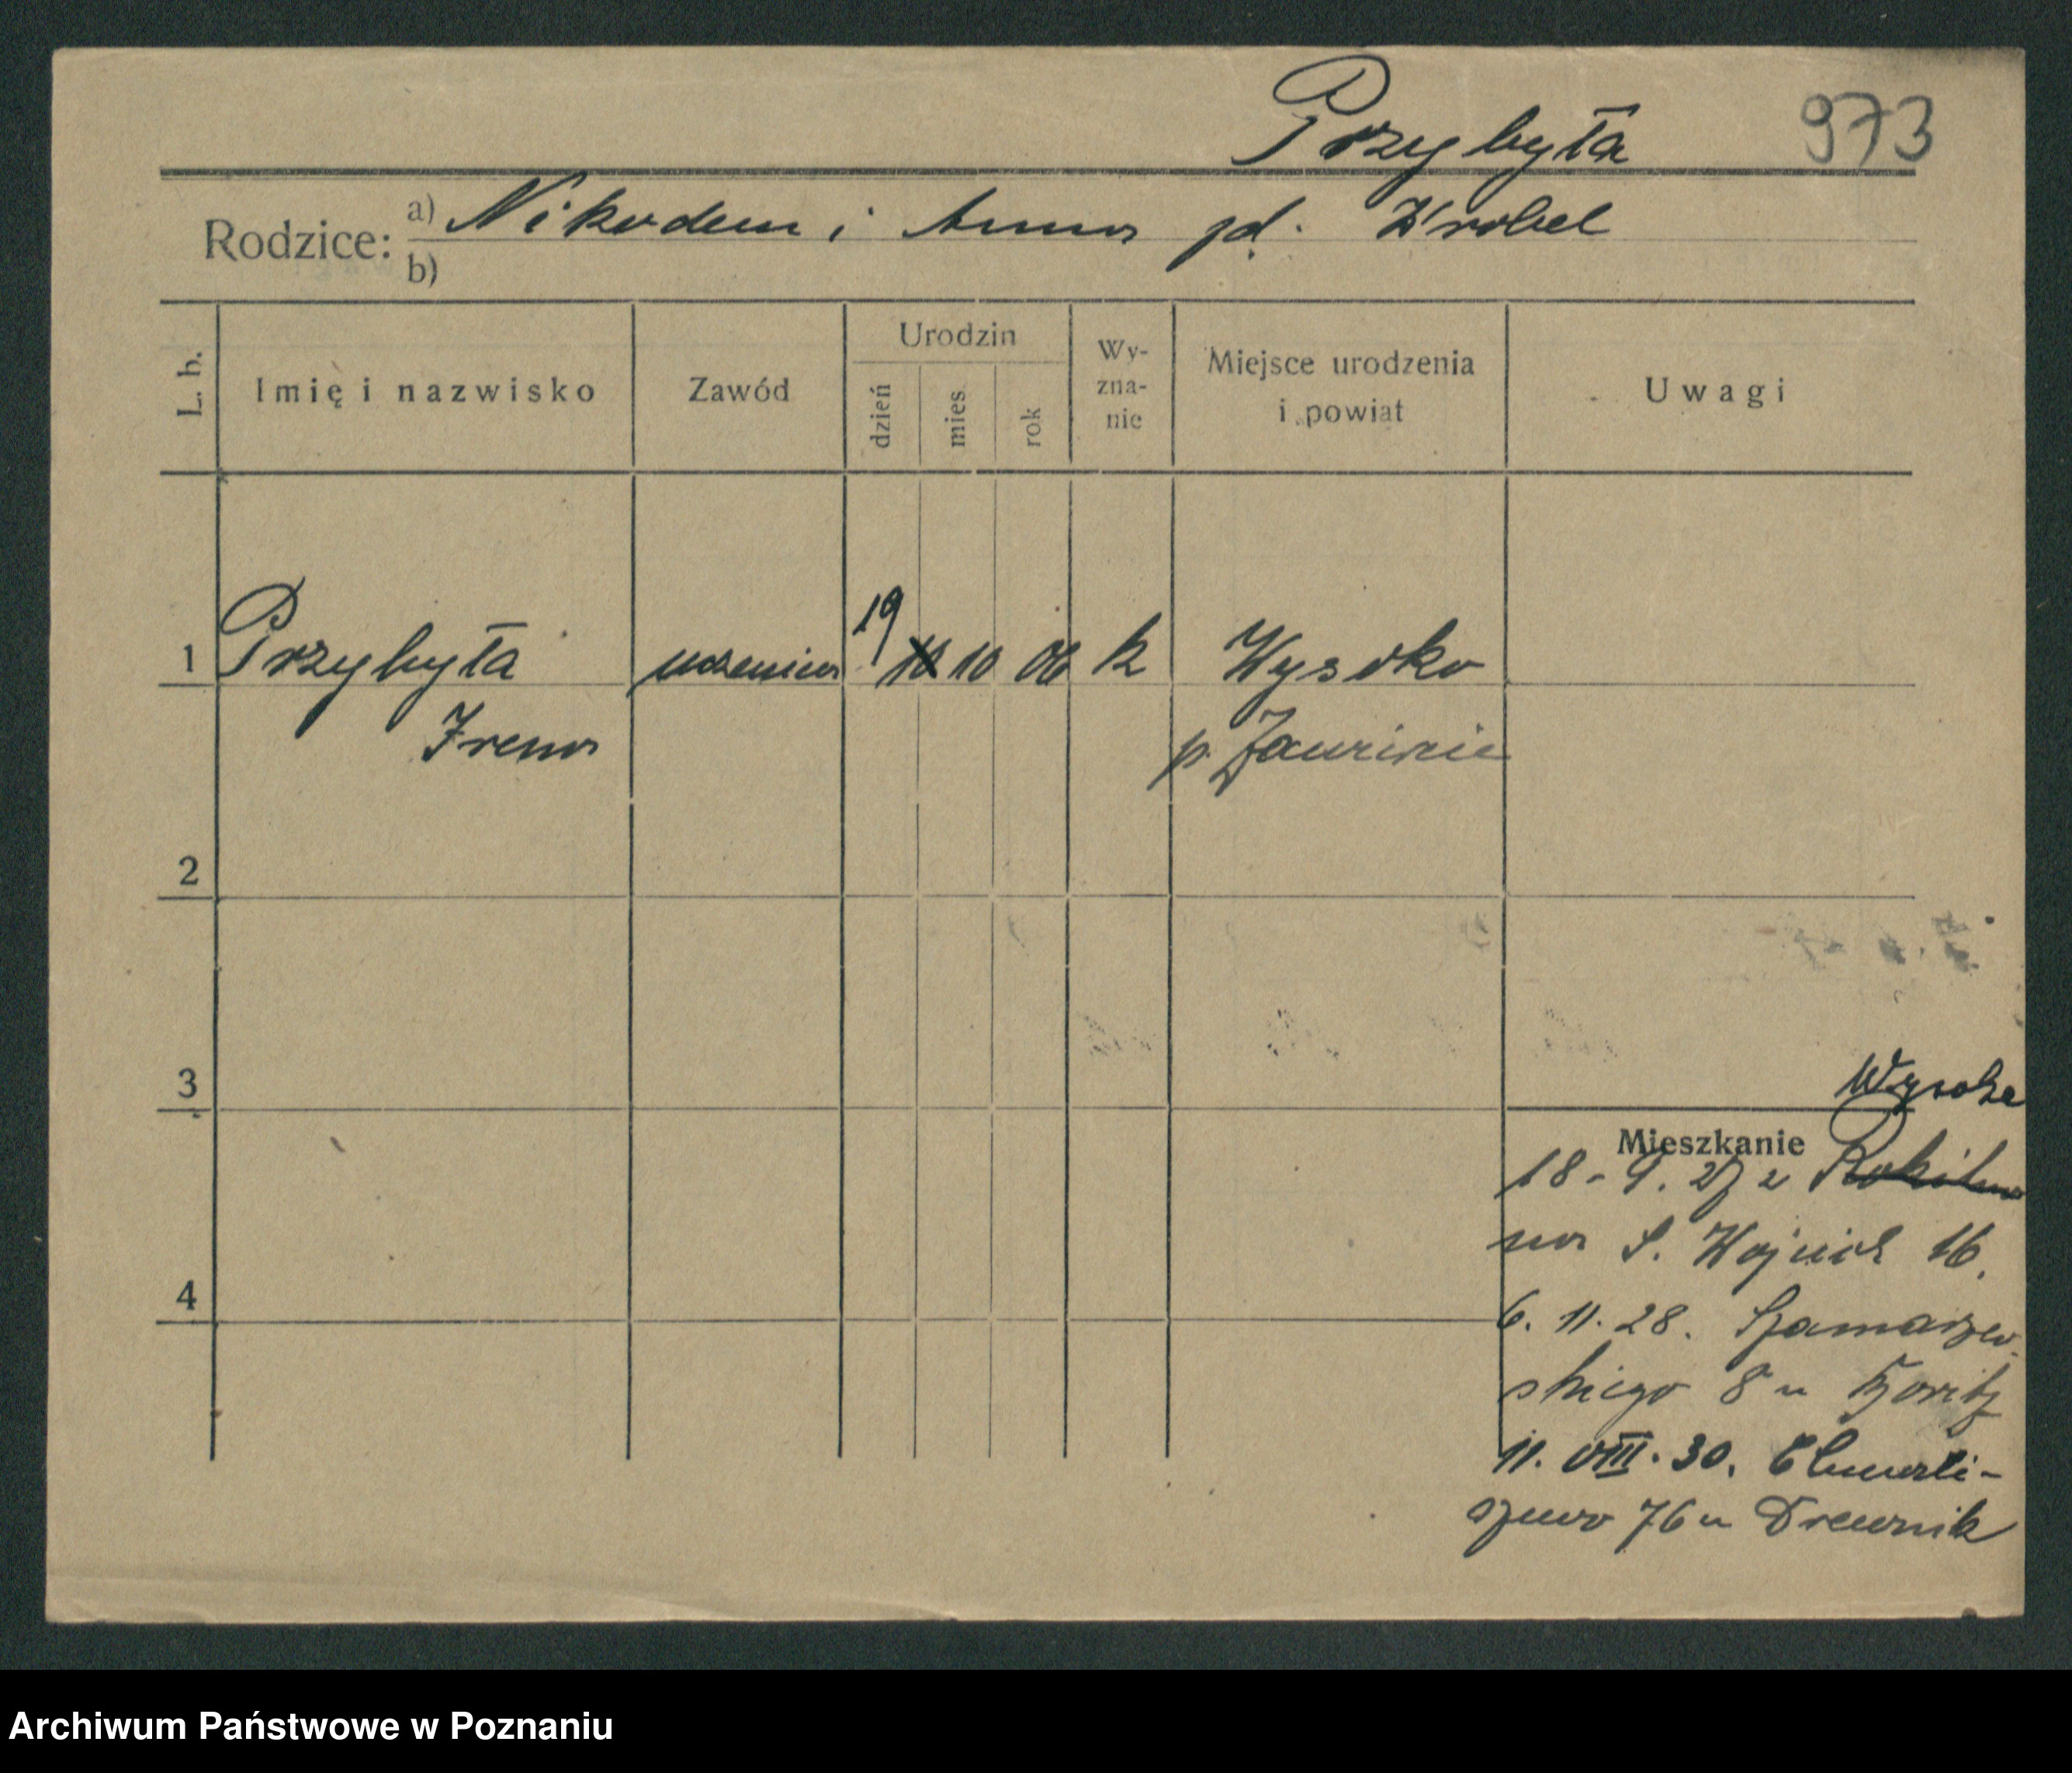 Przybyła 973
Rodzice: a) Nikodem i Anna zd. Wrobel
b)
L. b. Imię i nazwisko Zawód Urodzin dzień mies. rok Wy-zna-nie Miejsce urodzenia i powiat Uwagi
1 Przybyła uczenica 19 10 10 06 k Wysoka
Irena p.
2
3
Wysoka
Mieszkanie
18-9. 27 z Rokitna
na S. Wojciech 16.
4
6. 11. 28. Szamarzew-
skiego 8 u
11. VIII. 30. Chwali-
szewo 76 u Drewnik
Archiwum Państwowe w Poznaniu